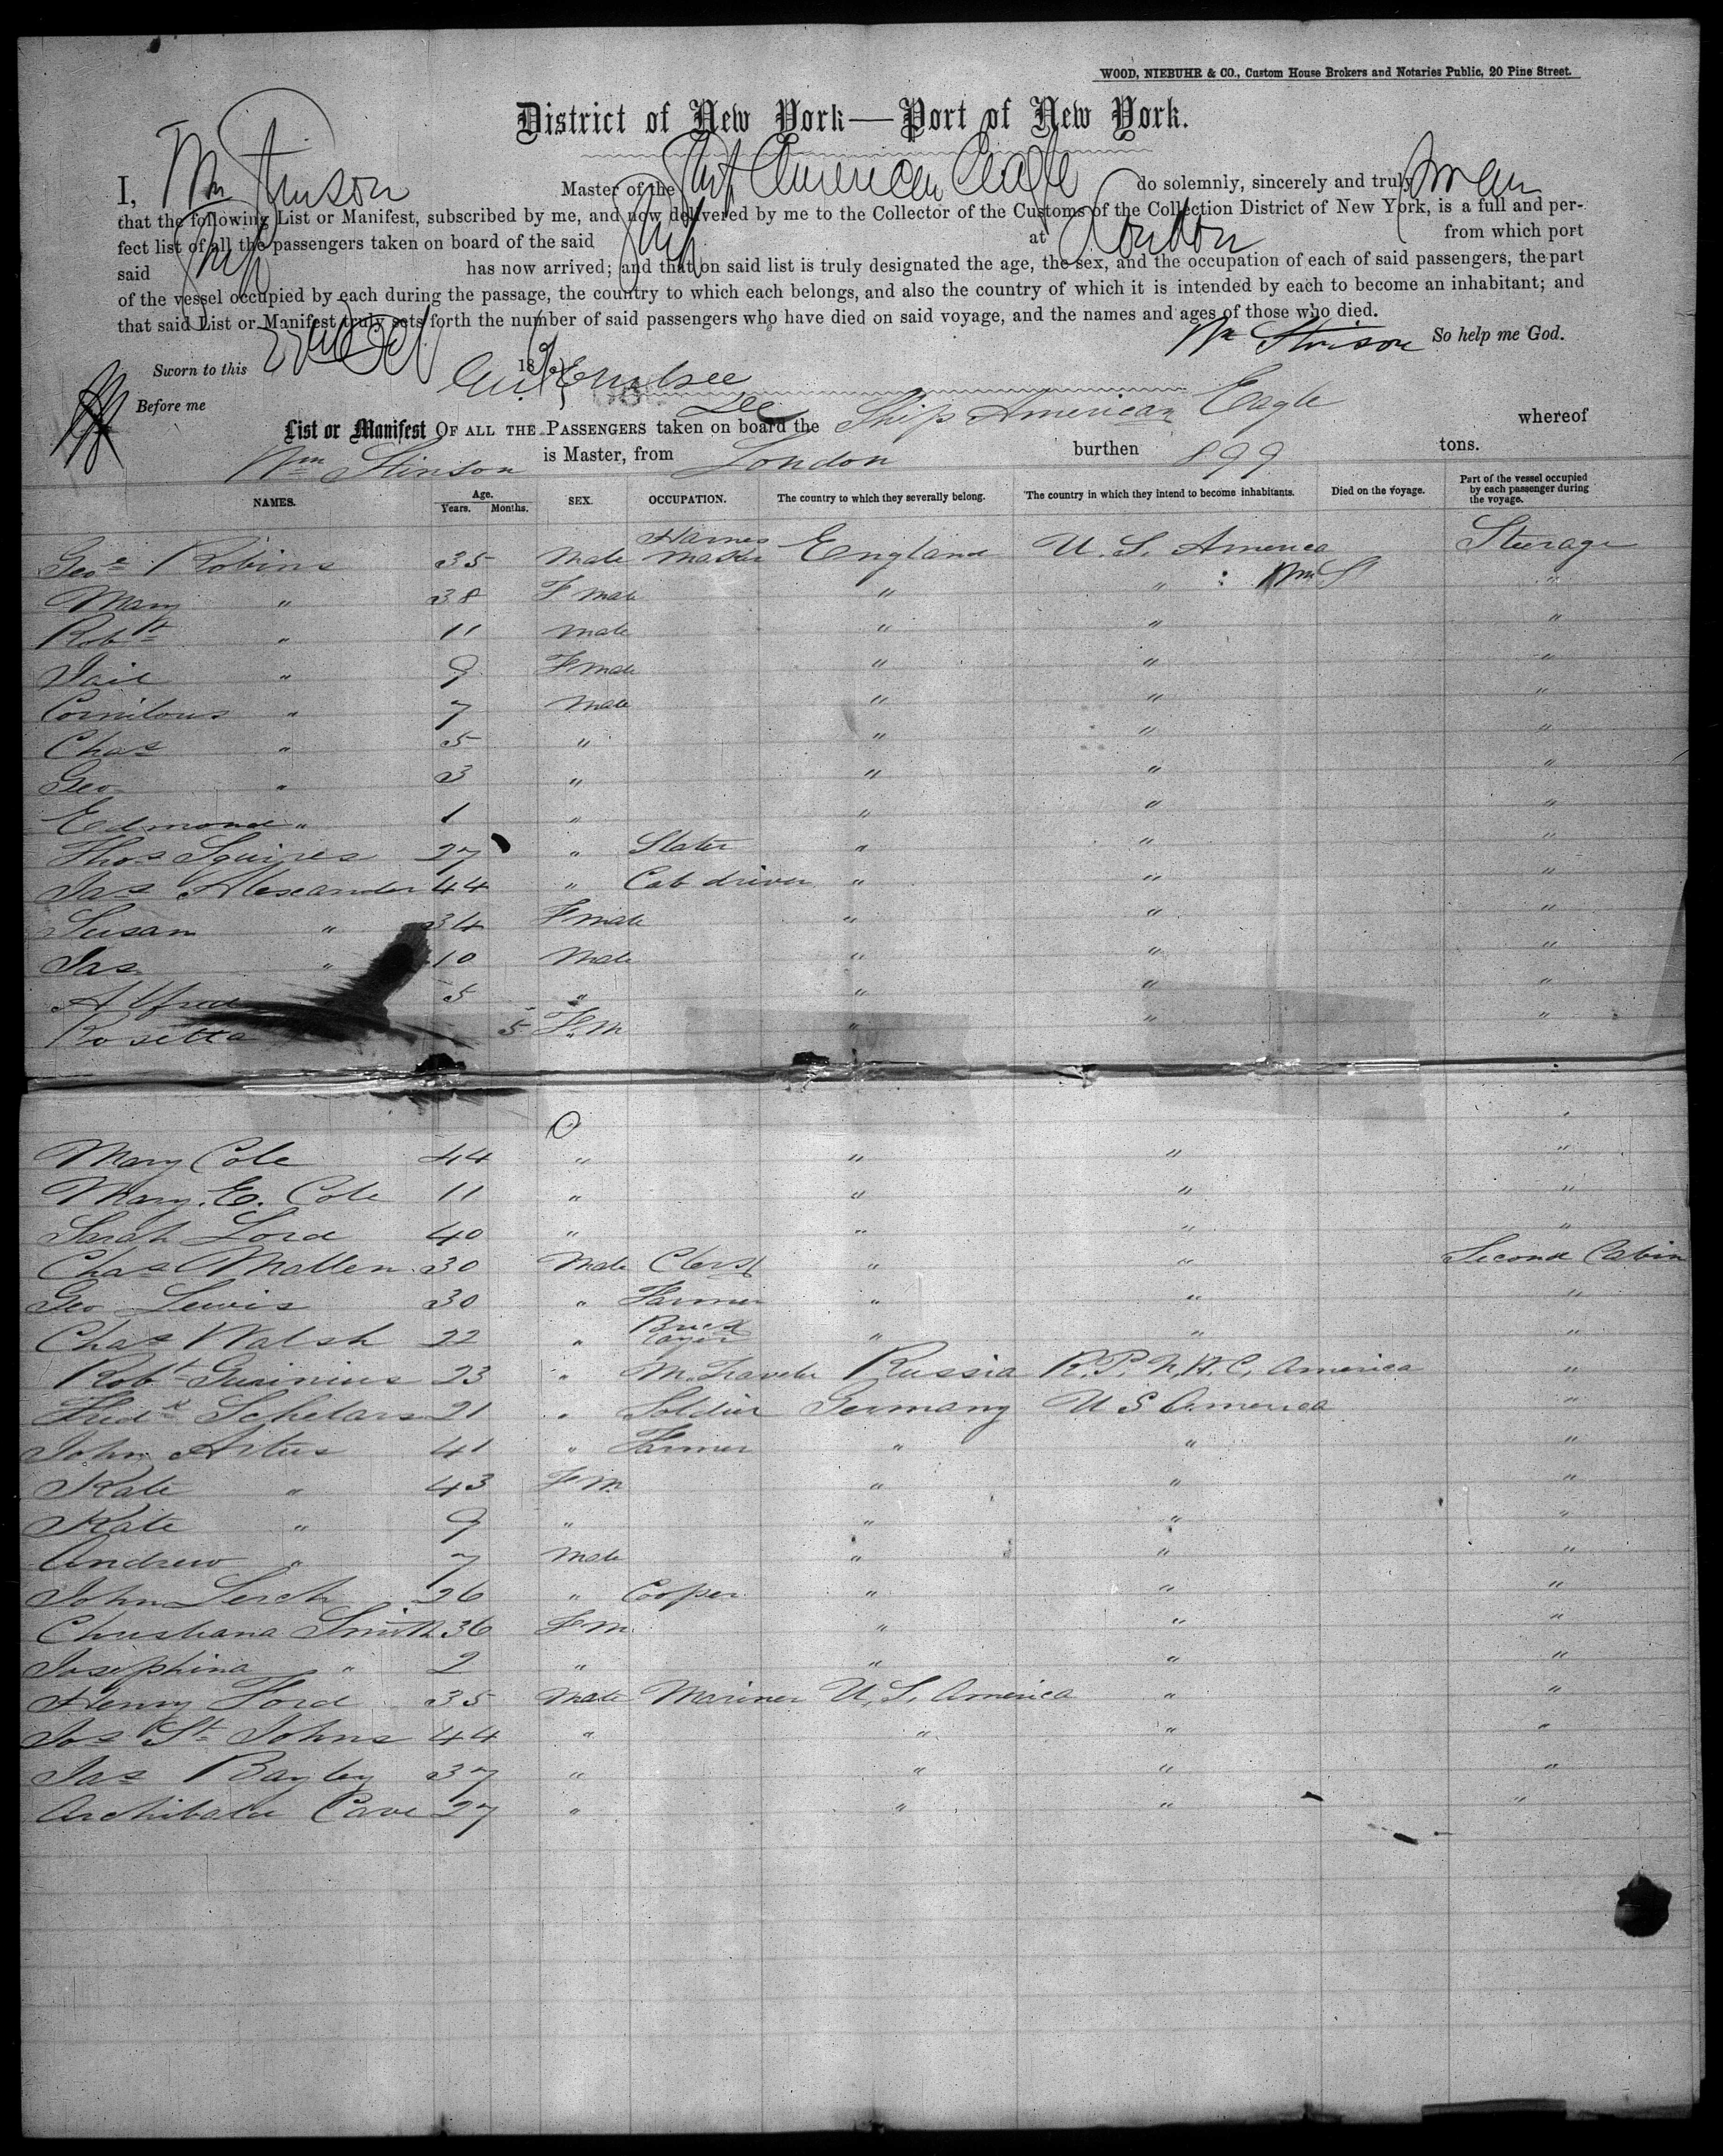 WOOD, NIEBUHR & CO., Custom House Brokers and Notaries Public, 20 Pine Street.
District of New York—Port of New York.
I, Wm Stinson Master of the Ship American Eagle do solemnly, sincerely and truly swear
that the following List or Manifest, subscribed by me, and now delivered by me to the Collector of the Customs of the Collection District of New York, is a full and per-
fect list of all the passengers taken on board of the said Ship at London from which port
said Ship has now arrived; and that on said list is truly designated the age, the sex, and the occupation of each of said passengers, the part
of the vessel occupied by each during the passage, the country to which each belongs, and also the country of which it is intended by each to become an inhabitant; and
that said List or Manifest truly sets forth the number of said passengers who have died on said voyage, and the names and ages of those who died.
Wm Stinson So help me God.
Sworn to this 186
Before me
List or Manifest OF ALL THE PASSENGERS taken on board the Ship American Eagle whereof
Wm Stinson is Master, from London burthen 899 tons.
NAMES. Age. Years. Months. SEX. OCCUPATION. The country to which they severally belong. The country in which they intend to become inhabitants. Died on the voyage. Part of the vessel occupied by each passenger during the voyage.
Geoe Robins 35 Male Harnes Maker England U. S. America Steerage
Mary " 38 F male " " "
Robt " 11 male " " "
" 9 F male " " "
Cornilous " 7 Male " " "
Chas " 5 " " " "
Geo " 3 " " " "
Edmond " 1 " " " "
Thos Squires 27 " Slater " " "
Jas Alexander 44 " Cab driver " " "
Susan " 34 F male " " "
Jas " 10 Male " " "
Alfred 5 " " " "
Rosetta 5 F. M " " "
Mary Cole 44 " " " "
Mary. E. Cole 11 " " " "
Sarah Lord 40 " " " "
Chas Mallen 30 Male Clerk " " Second Cabin
Geo Lewis 30 " Farmer " " "
Chas Walsh 22 " Brick Layer " " "
Robt 23 " M. Traveler Russia R. P. N. A. C. America "
Fredk Schelars 21 " Soldier Germany U S America "
John Artus 41 " Farmer " " "
Kate " 43 F M. " " "
Kate " 9 " " " "
Andrew " 7 Male " " "
John Lerch 26 " Cooper " " "
Christiana Smith 36 F M. " " "
Josephina " 2 " " " "
Henry Ford 35 Male Mariner U. S. America " "
Jos St Johns 44 " " " "
Jas Bayley 37 " " " "
Archibald Cave 27 " " " "